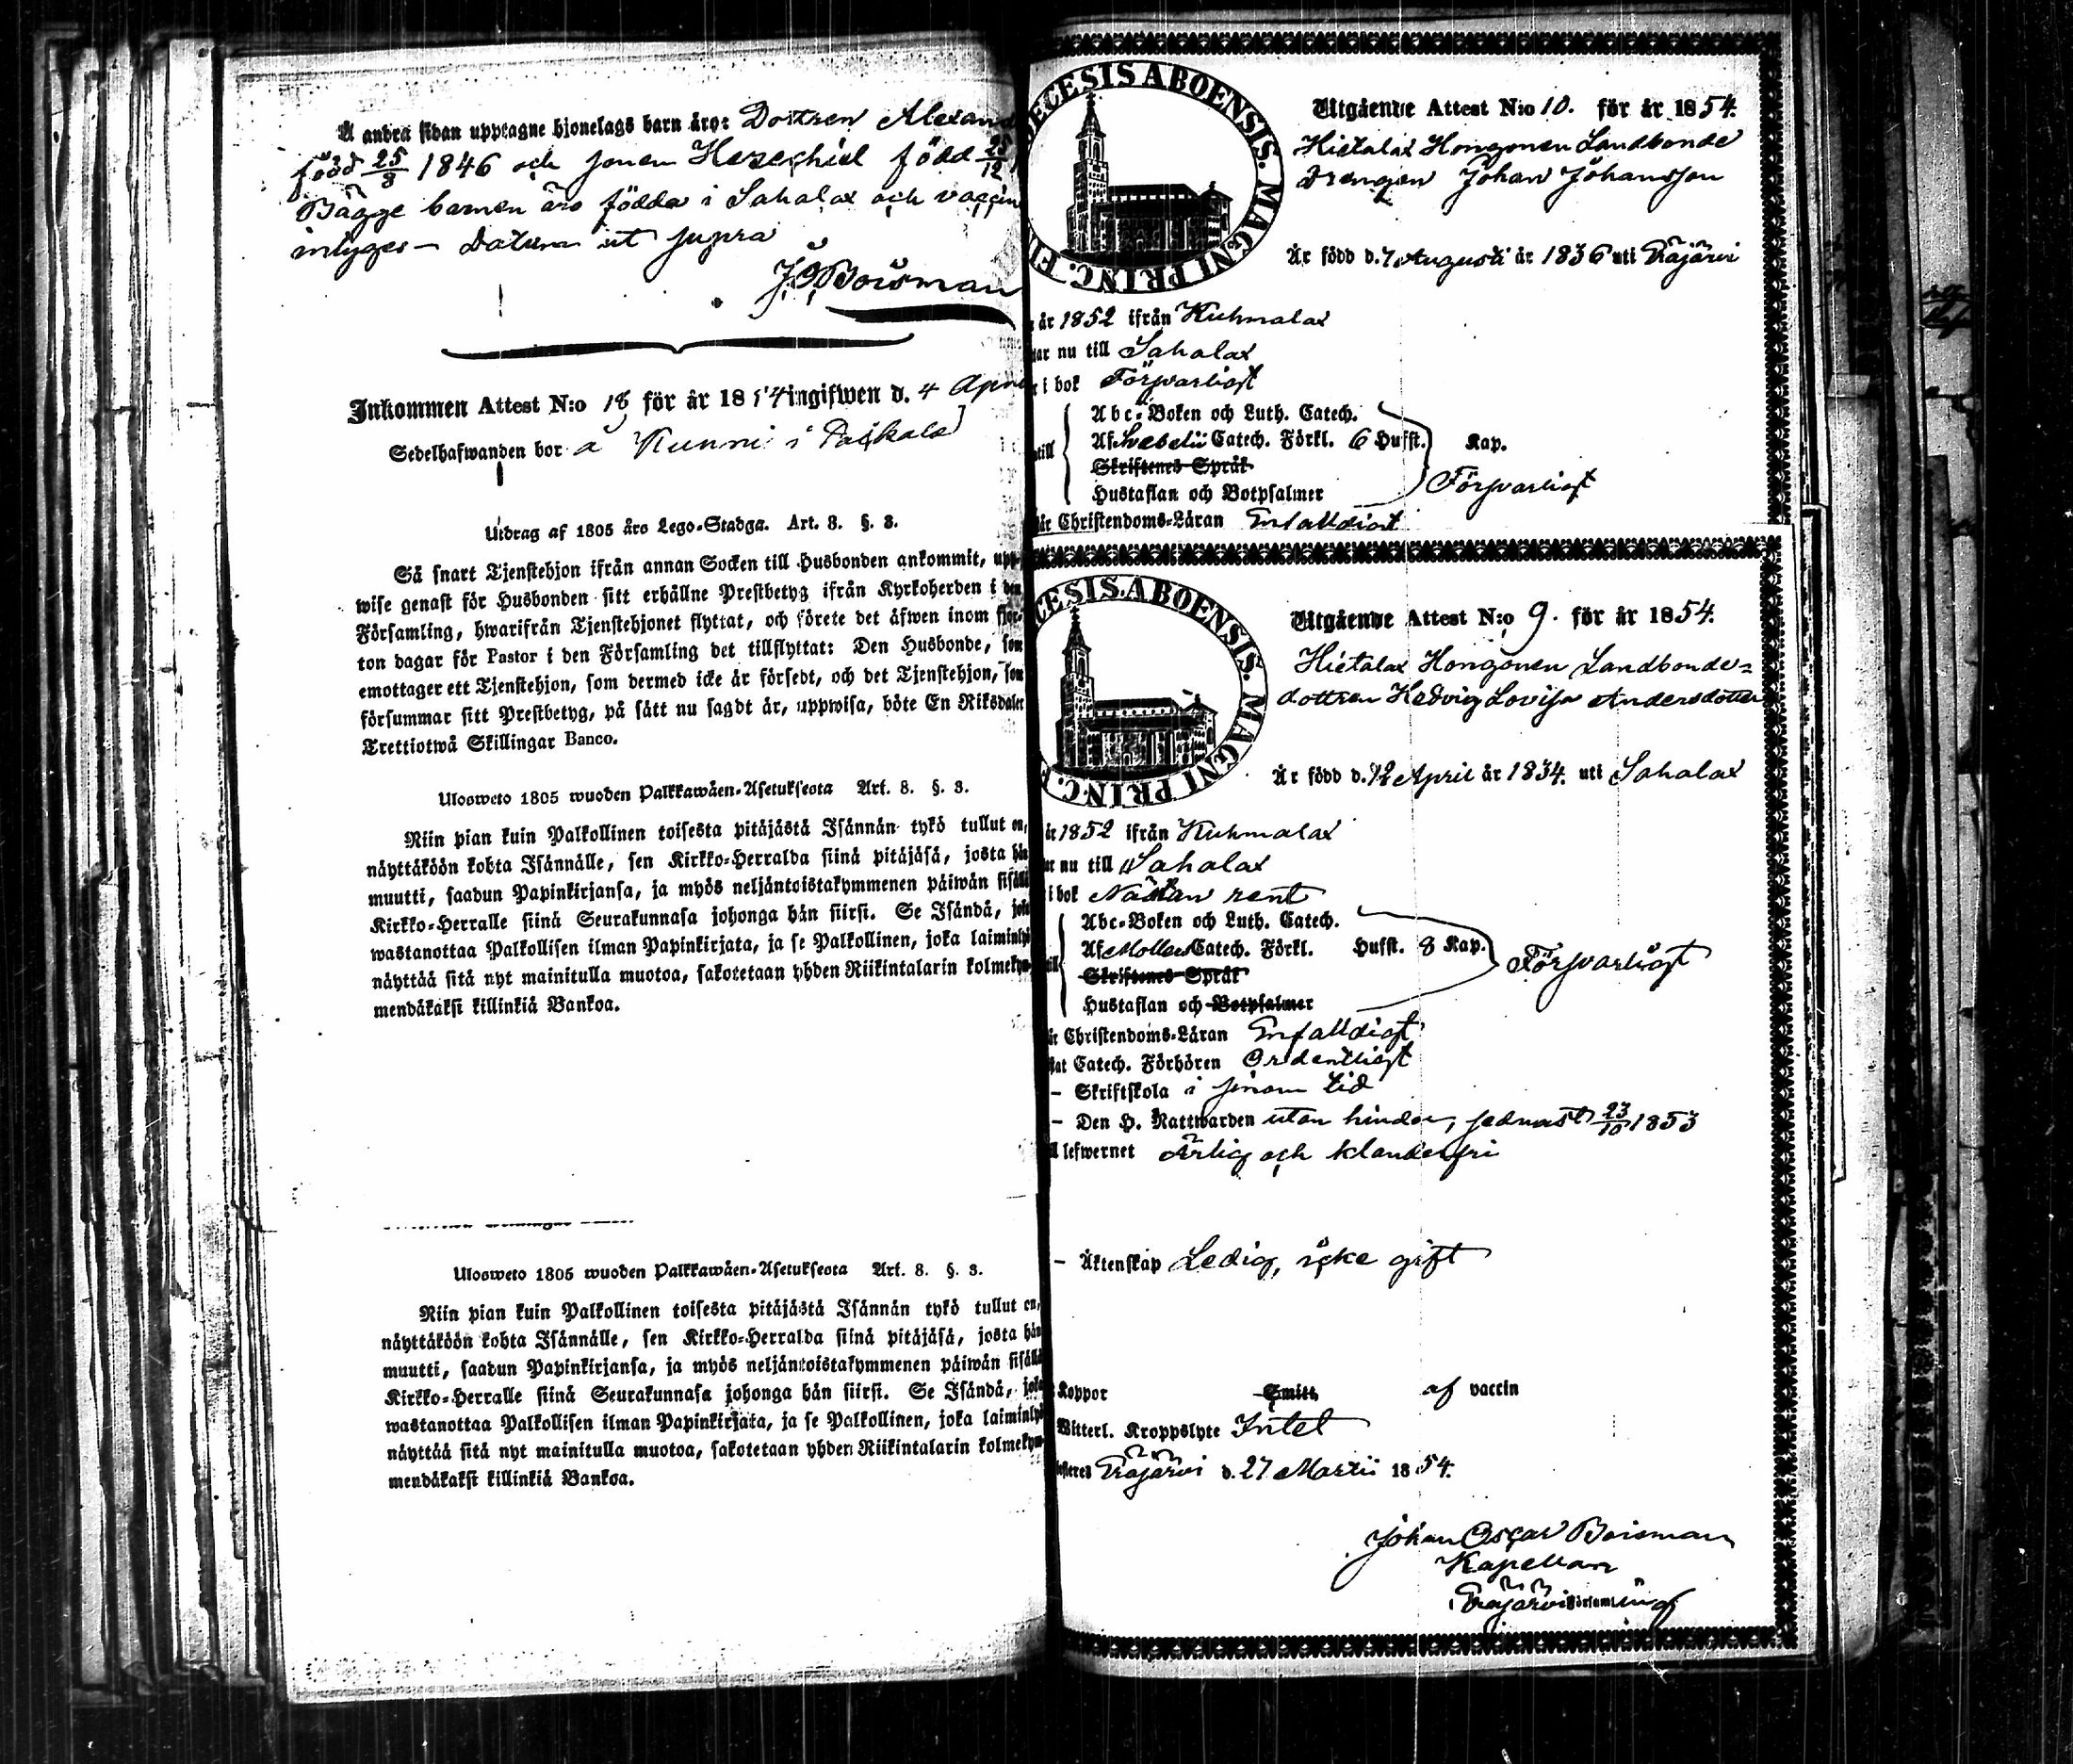 Å andra sidan upptagne hjonelags barn äro: Dottren Alexand
född 25/8 1846 och sonen Hesechiel född 25/12
Bägge barnen äro födda i Sahalax och vaccin
intyges – Datum ut supra
J. O. Boisman
Inkommen Attest N:o 18 för år 1854 ingifwen d. 4 Apri
Sedelhafwanden bor å Kunni i Paikala
Utdrag af 1805 års Lego-Stadga. Art. 8. §. 3.
Så snart Tjenstehjon ifrån annan Socken till Husbonden ankommit, upp-
wise genast för Husbonden sitt erhållne Prestbetyg ifrån Kyrkoherden i den
Församling, hwarifrån Tjenstehjonet flyttat, och förete det äfwen inom fjor-
ton dagar för Pastor i den Församling det tillflyttat: Den Husbonde, som
emottager ett Tjenstehjon, som dermed icke är försedt, och det Tjenstehjon, som
försummar sitt Prestbetyg, på sätt nu sagdt är, uppwisa, böte En Riksdaler
Trettiotwå Skillingar Banco.
Ulosweto 1805 wuoden Palkkawäen-Asetuksesta Art. 8. §. 3.
Niin pian kuin Palkollinen toisesta pitäjästä Isännän tykö tullut on,
näyttäköön kohta Isännälle, sen Kirkko-Herralda siinä pitäjäsä, josta hän
muutti, saadun Papinkirjansa, ja myös neljäntoistakymmenen päiwän sisällä
Kirkko-Herralle siinä Seurakunnasa johonga hän siirsi. Se Isändä, joka
wastanottaa Palkollisen ilman Papinkirjata, ja se Palkollinen, joka laiminlyö
näyttää sitä nyt mainitulla muotoa, sakotetaan yhden Riikintalarin kolmekym-
mendäkaksi killinkiä Bankoa.
Ulosweto 1805 wuoden Palkkawäen-Asetuksesta Art. 8. §. 3.
Niin pian kuin Palkollinen toisesta pitäjästä Isännän tykö tullut on,
näyttäköön kohta Isännälle, sen Kirkko-Herralda siinä pitäjäsä, josta hän
muutti, saadun Papinkirjansa, ja myös neljäntoistakymmenen päiwän sisällä
Kirkko-Herralle siinä Seurakunnasa johonga hän siirsi. Se Isändä, joka
wastanottaa Palkollisen ilman Papinkirjata, ja se Palkollinen, joka laiminlyö
näyttää sitä nyt mainitulla muotoa, sakotetaan yhden Riikintalarin kolmekym-
mendäkaksi killinkiä Bankoa.
ECESIS ABOENSIS. MAGNI PRINC. FI
Utgående Attest N:o 10. för år 1854.
Hietalax Hongonen Landbonde
drengen Johan Johansson
Är född d. 7 Augusti år 1836 uti Eräjärvi
år 1852 ifrån Kuhmalax
ar nu till Sahalax
i bok Försvarligt
Abc-Boken och Luth. Catech.
till Af Svebelii Catech. Förkl. 6 Hufst. Kap.
Skriftenes Språk
Försvarligt
Hustaflan och Botpsalmer
är Christendoms-Läran Enfalldigt
ECESIS ABOENSIS. MAGNI PRINC. F
Utgående Attest N:o 9. för år 1854.
Hietalax Hongonen Landbonde=
dottren Hedvig Lovisa Andersdotter
Är född d. 12 April år 1834. uti Sahalax
år 1852 ifrån Kuhmalax
ar nu till Sahalax
i bok Nästan rent
Abc-Boken och Luth. Catech.
Af Mollers Catech. Förkl. Hufst. 8 Kap. Försvarligt
Skriftenes Språk
Hustaflan och Botpsalmer
är Christendoms-Läran Enfalldigt
tat Catech. Förhören Ordentligt
– Skriftskola i sinom tid
– Den H. Nattwarden utan hinder, sednast 23/10 1853
lefwernet Ärlig och klanderfri
– Äktenskap Ledig, icke gift
Koppor Smitt af vaccin
Witterl. Kroppslyte Intet
Eräjärvi d. 27 Martii 1854.
Johan Oscar Boisman
Kapellan
i Eräjärvi Församling